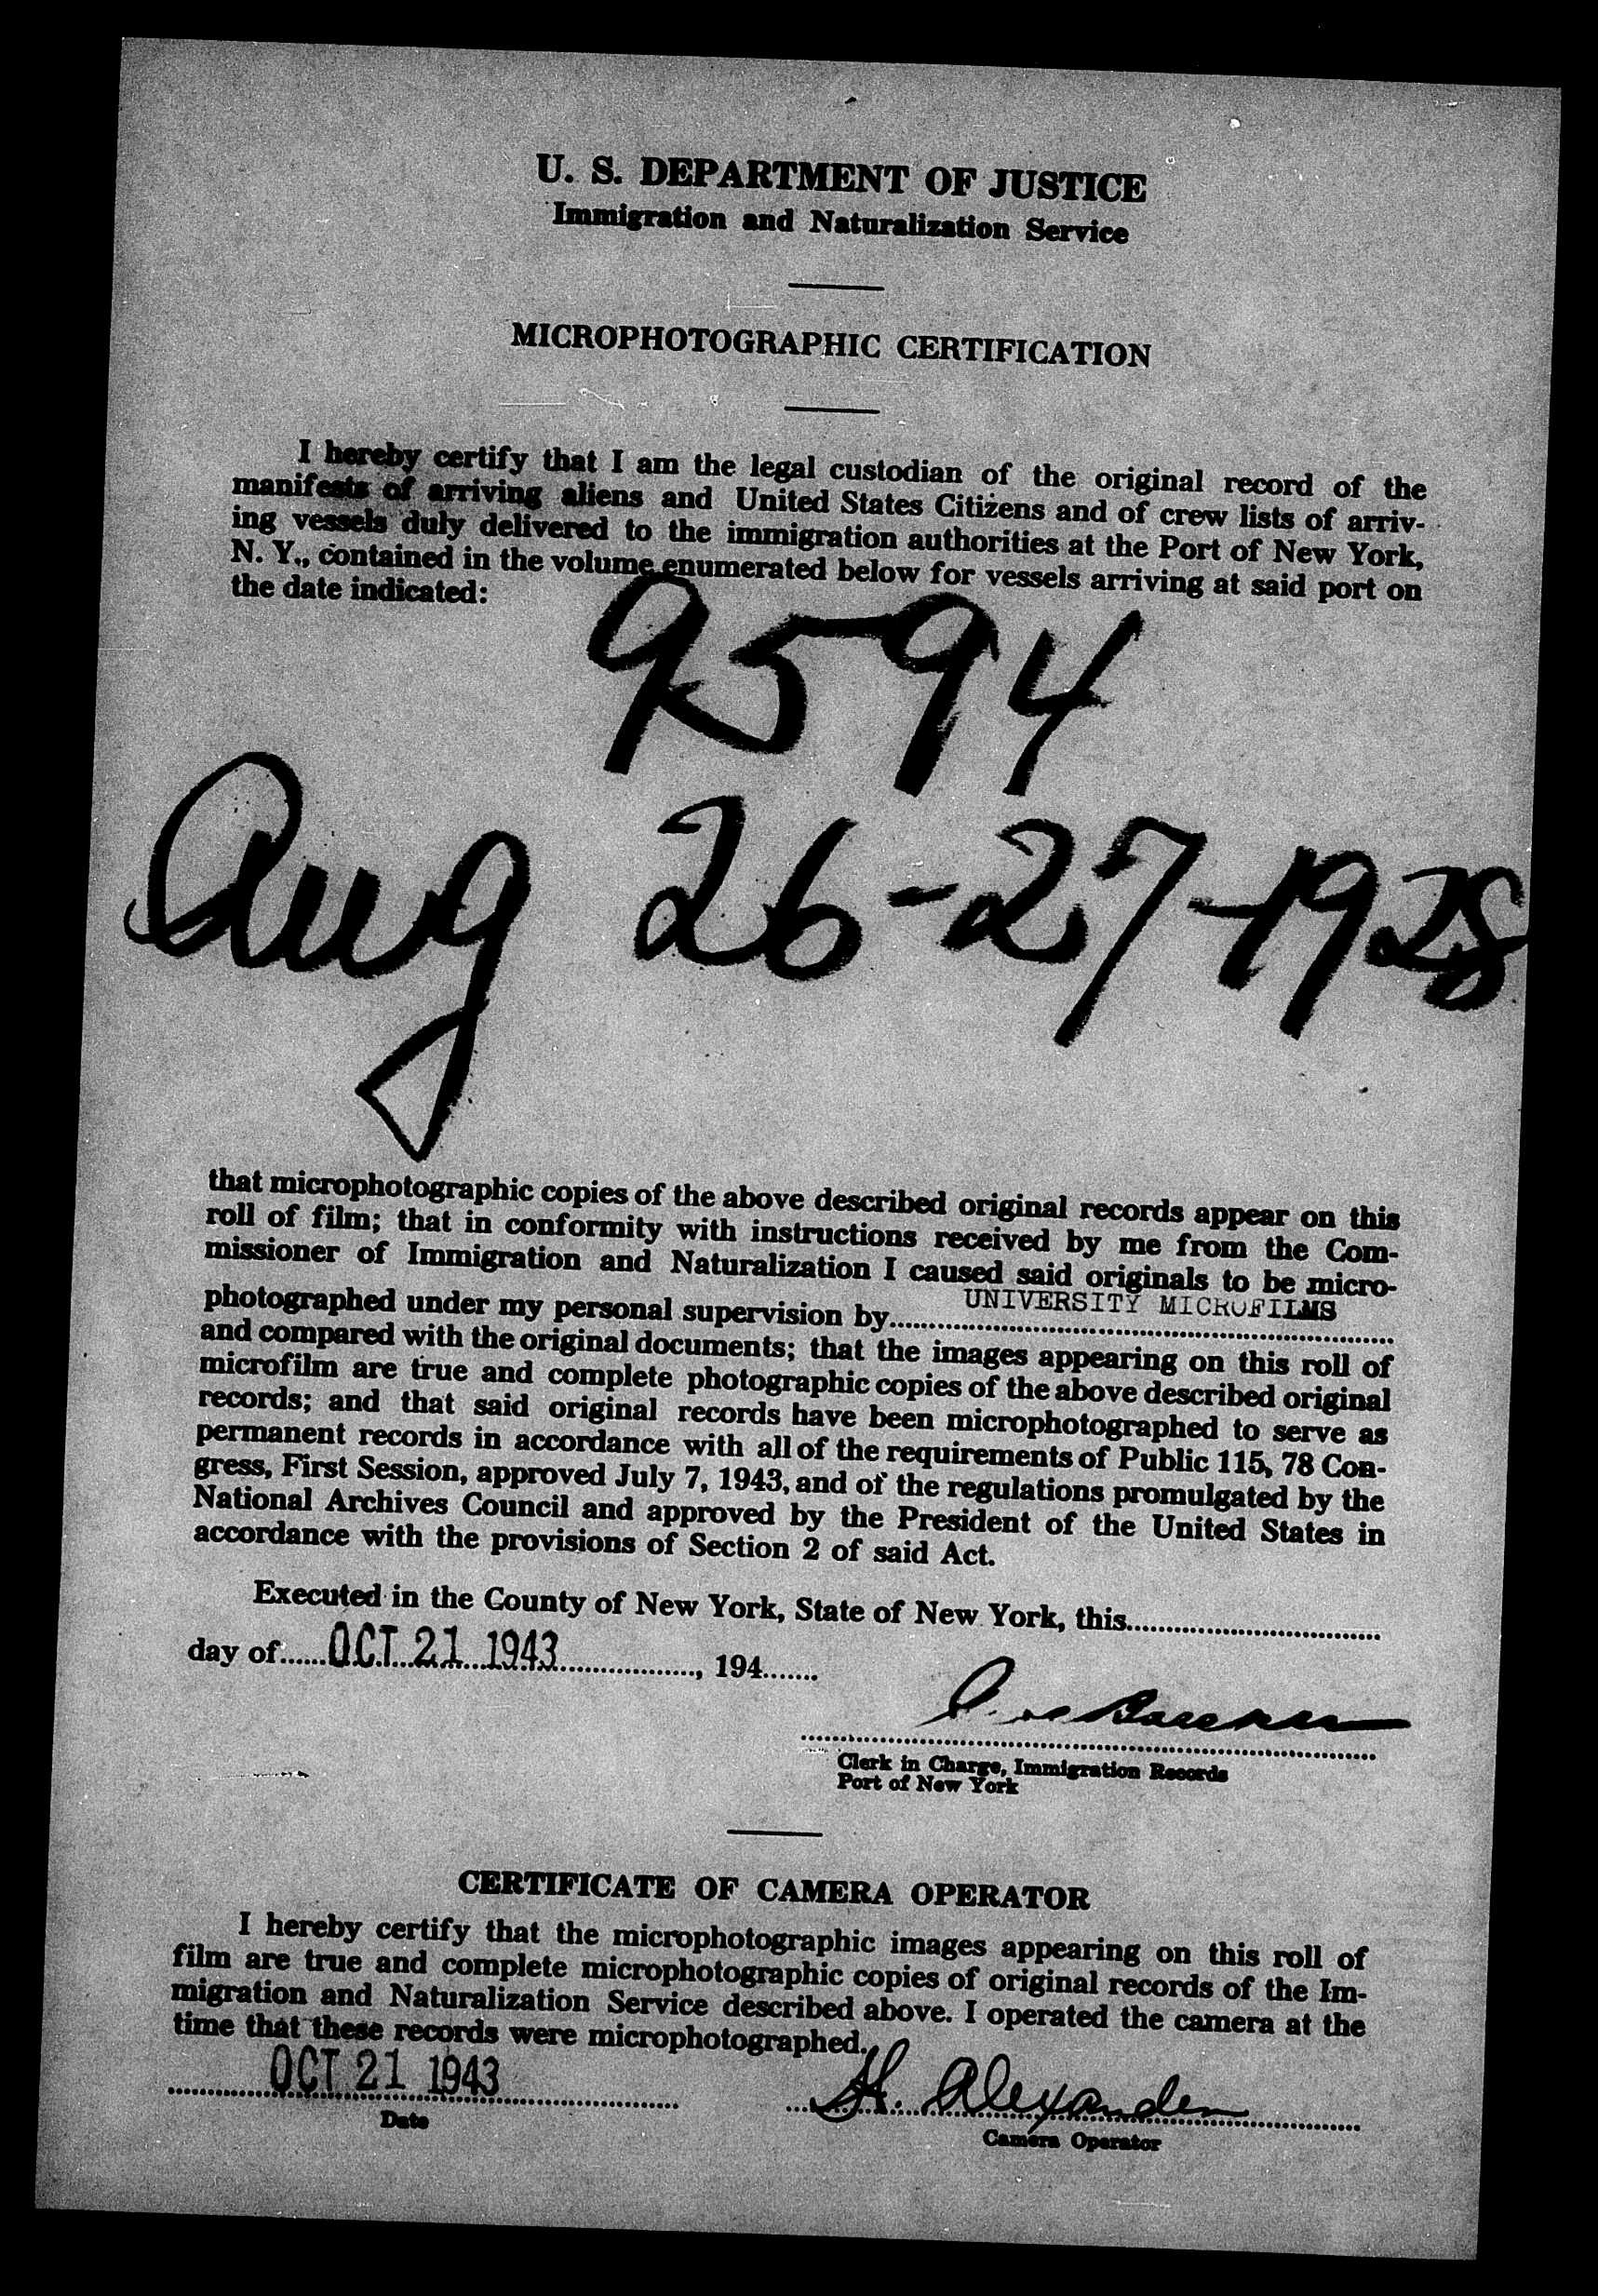 U. S. DEPARTMENT OF JUSTICE
Immigration and Naturalization Service
MICROPHOTOGRAPHIC CERTIFICATION
I hereby certify that I am the legal custodian of the original record of the
manifests of arriving aliens and United States Citizens and of crew lists of arriv-
ing vessels duly delivered to the immigration authorities at the Port of New York,
N. Y., contained in the volume enumerated below for vessels arriving at said port on
the date indicated:
9594
Aug 26-27-1928
that microphotographic copies of the above described original records appear on this
roll of film; that in conformity with instructions received by me from the Com-
missioner of Immigration and Naturalization I caused said originals to be micro-
photographed under my personal supervision by UNIVERSITY MICROFILMS
and compared with the original documents; that the images appearing on this roll of
microfilm are true and complete photographic copies of the above described original
records; and that said original records have been microphotographed to serve as
permanent records in accordance with all of the requirements of Public 115, 78 Con-
gress, First Session, approved July 7, 1943, and of the regulations promulgated by the
National Archives Council and approved by the President of the United States in
accordance with the provisions of Section 2 of said Act.
Executed in the County of New York, State of New York, this
day of OCT 21 1943, 194
Clerk in Charge, Immigration Records
Port of New York
CERTIFICATE OF CAMERA OPERATOR
I hereby certify that the microphotographic images appearing on this roll of
film are true and complete microphotographic copies of original records of the Im-
migration and Naturalization Service described above. I operated the camera at the
time that these records were microphotographed.
OCT 21 1943 H. Alexander
Date Camera Operator